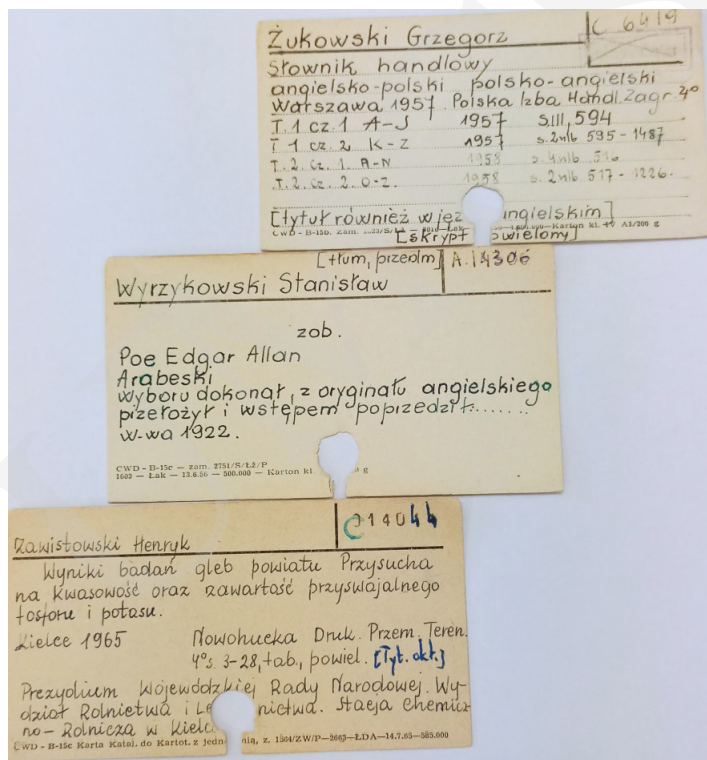 Żukowski Grzegorz
C 6419
Słownik handlowy
angielsko-polski polsko-angielski
Warszawa 1957. Polska Izba Handl. Zagr. 4°
T. 1 cz. 1 A-J 1957 s. III, 594
T. 1 cz. 2 K-Z 1957 s. 2nlb 595-1487
T. 2. cz. 1. A-N 1958 s. 4nlb 516
T. 2. cz. 2. O-Z. 1958 s. 2nlb 517-1226.
[tytuł również w jęz angielskim]
[skrypt powielony]
CWD - B-15b. Zam. Karton kl. A1/200 g
[tłum, przedm]
A.14306
Wyrzykowski Stanisław
zob.
Poe Edgar Allan
Arabeski
Wyboru dokonał, z oryginału angielskiego
przełożył i wstępem poprzedził.......
W-wa 1922.
CWD - B-15c — zam. 2751/S/Łż/P
1603 — Łak — 13.6.56 — 500.000 — Karton kl g
C 14044
Zawistowski Henryk
Wyniki badań gleb powiatu Przysucha
na kwasowość oraz zawartość przyswajalnego
fosforu i potasu.
Kielce 1965 Nowohucka Druk. Przem. Teren.
4° s. 3-28, tab., powiel. [Tyt. okł.]
Prezydium Wojewódzkiej Rady Narodowej. Wy-
dział Rolnictwa i Le nictwa. Stacja Chemicz
no-Rolnicza w Kielc
CWD - B-15c Karta Katal. do Kartot. z jedn nią, z. 1504/ZW/P—2663—ŁDA—14.7.65—585.000